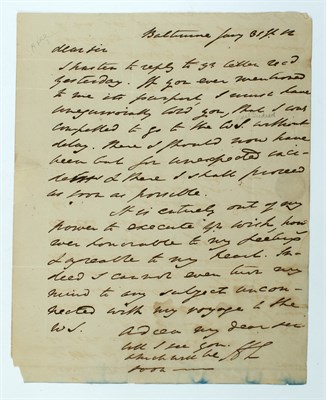 Baltimore Jany 31st
dear sir
I hasten to reply to yr letter recd
yesterday. If you ever mentioned
to me its purport I must have
unequivocally told you, that I was
compelled to go to the W.S. without
delay. there I should now have
been but for unexpected inci-
dents & there I shall proceed
as soon as possible.
It is entirely out of my
power to execute yr wish, how
ever honorable to my feelings
& agreeable to my heart. In-
deed I cannot even turn my
mind to any subject uncon-
nected with my voyage to the
W.S. Adieu my dear sir
till I see you.
which will be
soon